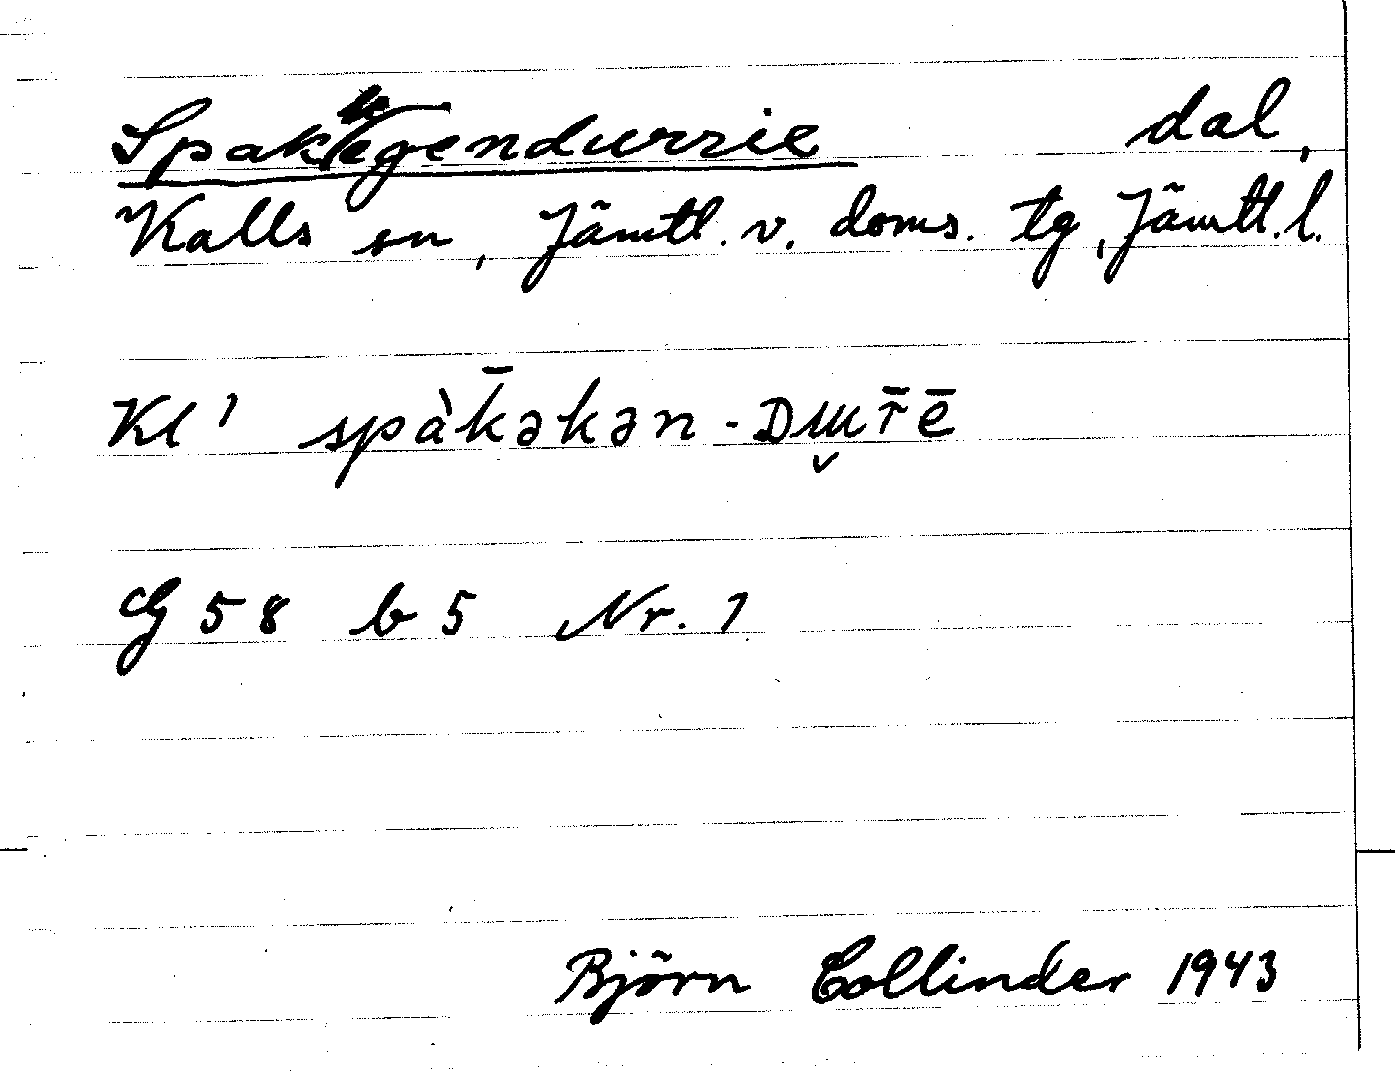 Spakkegendurrie dal,
Kalls sn, Jämtl. v. doms. tg, Jämtl. l.
Kl' spàk̄əkən-Dɯ̬r̄ē
G 58 b 5 Nr. 1
Björn Collinder 1943